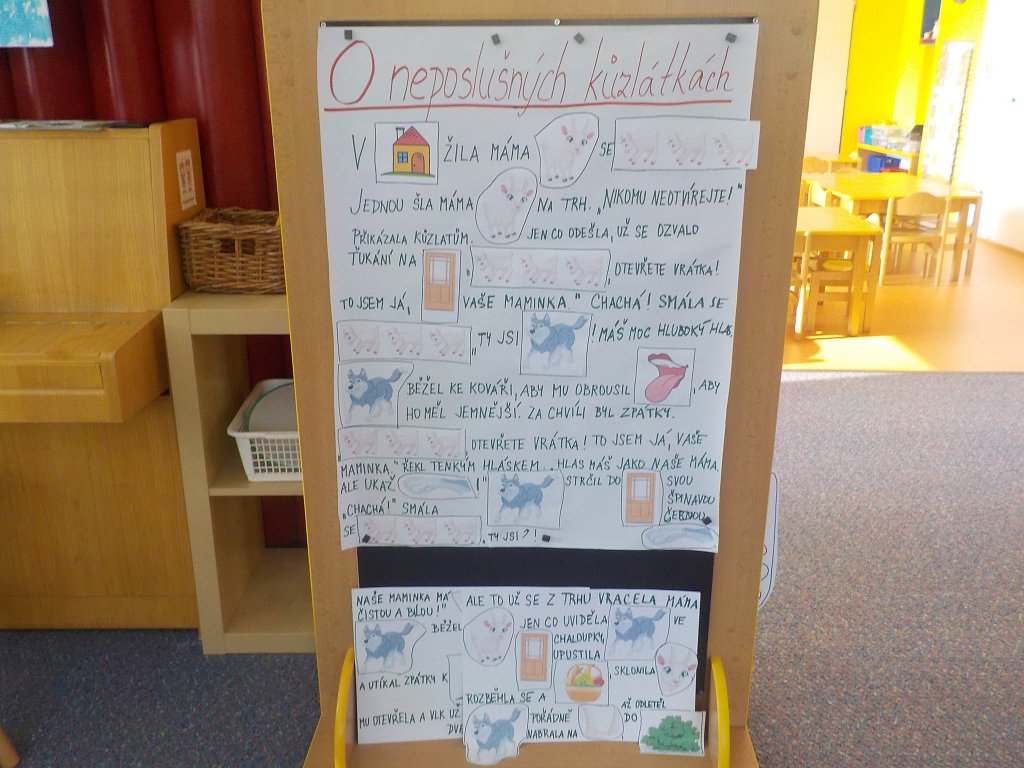 O neposlušných kůzlátkách
V ŽILA MÁMA SE
JEDNOU ŠLA MÁMA NA TRH. „NIKOMU NEOTVÍREJTE!"
PŘIKÁZALA KŮZLATŮM. JEN CO ODEŠLA, UŽ SE OZVALO
ŤUKÁNÍ NA „ , OTEVŘETE VRÁTKA!
TO JSEM JÁ, VAŠE MAMINKA." CHACHÁ! SMÁLA SE
„TY JSI ! MÁŠ MOC HLUBOKÝ HLAS.
BĚŽEL KE KOVÁŘI, ABY MU OBROUSIL , ABY
HO MĚL JEMNĚJŠÍ. ZA CHVÍLI BYL ZPÁTKY.
„ , OTEVŘETE VRÁTKA! TO JSEM JÁ, VAŠE
MAMINKA." ŘEKL TENKÝM HLÁSKEM. „HLAS MÁŠ JAKO NAŠE MÁMA.
ALE UKAŽ !" STRČIL DO SVOU
ŠPINAVOU
„CHACHÁ!" SMÁLA ČERNOU
SE „TY JSI ?!
NAŠE MAMINKA MÁ
ČISTOU A BÍLOU!"
BĚŽEL
A UTÍKAL ZPÁTKY K
MU OTEVŘELA A VLK UŽ
DVE
ALE TO UŽ SE Z TRHU VRACELA MÁMA
JEN CO UVIDĚLA VE
CHALOUPKY,
UPUSTILA , SKLONILA
ROZBĚHLA SE A
POŘÁDNĚ AŽ ODLETĚL
NABRALA NA DO